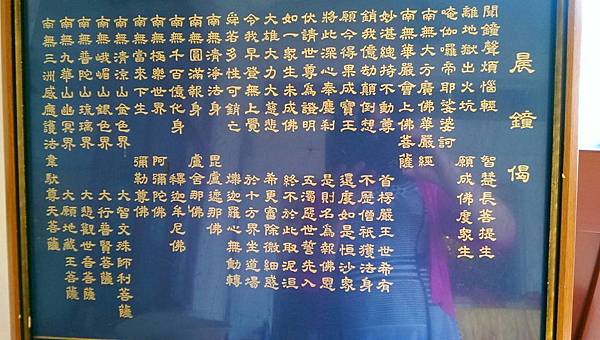 晨鐘偈
聞鐘聲煩惱輕 智慧長菩提生
離地獄出火坑 願成佛度眾生
唵伽囉帝耶娑婆訶
南無大方廣佛華嚴經
南無華嚴會上佛菩薩
妙湛總持不動尊 首楞嚴王世希有
銷我億劫顛倒想 不歷僧祇獲法身
願今得果成寶王 還度如是恒沙眾
將此深心奉塵剎 是則名為報佛恩
伏請世尊為證明 五濁惡世誓先入
如一眾生未成佛 終不於此取泥洹
大雄大力大慈悲 希更審除微細惑
令我早登無上覺 於十方界坐道場
舜若多性可銷亡 爍迦羅心無動轉
南無清淨法身 毘盧遮那佛
南無圓滿報身 盧舍那佛
南無千百億化身 釋迦牟尼佛
南無極樂世界 阿彌陀佛
南無當來下生 彌勒尊佛
南無清涼山金色界 大智文殊師利菩薩
南無峨嵋山銀色界 大行普賢菩薩
南無普陀山琉璃界 大悲觀世音菩薩
南無九華山幽冥界 大願地藏王菩薩
南無三洲感應護法韋馱尊天菩薩